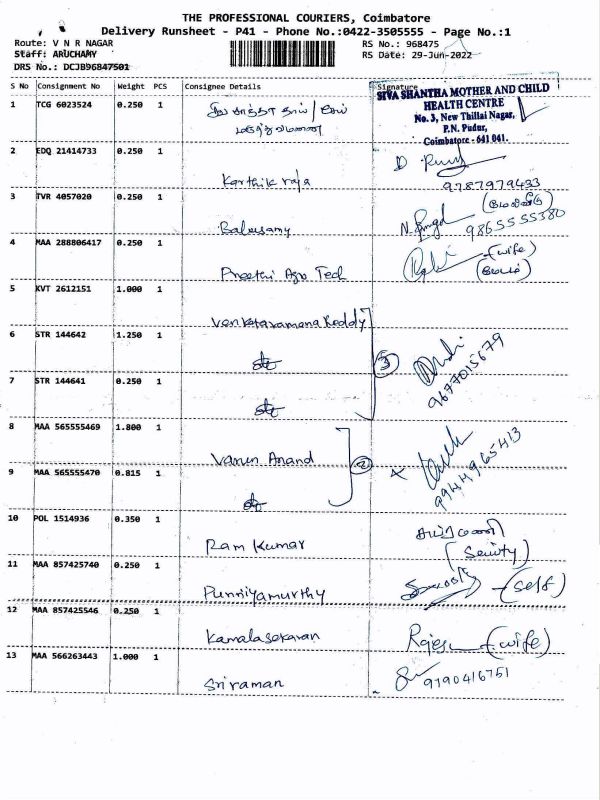 THE PROFESSIONAL COURIERS, Coimbatore
Delivery Runsheet - P41 - Phone No.:0422-3505555 - Page No.:1
Route: V N R NAGAR
RS No.: 968475
Staff: ARUCHAMY
RS Date: 29-Jun-2022
DRS No.: DCJB96847501
S No Consignment No Weight PCS Consignee Details Signature
SIVA SHANTHA MOTHER AND CHILD
HEALTH CENTRE
No. 3, New Thillai Nagar,
P.N. Pudur,
Coimbatore - 641 041.
1 TCG 6023524 0.250 1
2 EDQ 21414733 0.250 1
Karthik raja 9787979433
3 TVR 4057020 0.250 1
Balusamy 9865555380
4 MAA 288806417 0.250 1
Preethi Agro Tech (wife)
5 KVT 2612151 1.000 1
Venkataramana Reddy
6 STR 144642 1.250 1
3
9677015679
7 STR 144641 0.250 1
8 MAA 565555469 1.800 1
Varun Anand 2
9944965413
9 MAA 565555470 0.815 1
10 POL 1514936 0.350 1
Ram Kumar
11 MAA 857425740 0.250 1
Punniyamurthy (self)
12 MAA 857425546 0.250 1
Kamalasekaran (wife)
13 MAA 566263443 1.000 1
Sriraman 9790416751